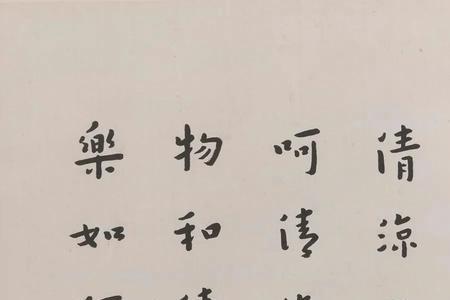 清涼
呵清
物和
樂如